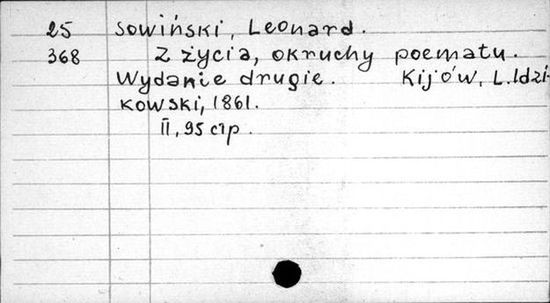 25 Sowiński, Leonard.
368 Z życia, okruchy poematu.
Wydanie drugie. Kijów, L. Idzi-
kowski, 1861.
II, 95 стр.